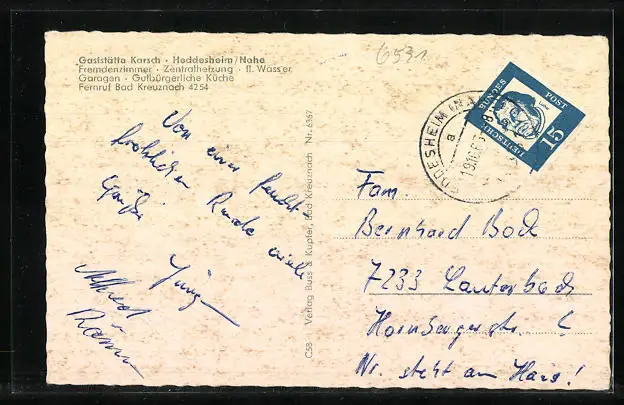 6531
Gaststätte Karsch · Heddesheim/Nahe
Fremdenzimmer · Zentralheizung · fl. Wasser
Garagen · Gutbürgerliche Küche
Fernruf Bad Kreuznach 4254
DEUTSCHE BUNDESPOST
Luther
15
HEDDESHEIM
a
Von einer feucht-
fröhlichen Runde viele
Grüße
Jürgen
C58 Verlag Buss & Kupfer, Bad Kreuznach Nr. 6367
Fam.
Bernhard Bock
7233 Lauterbach
Hornbergerstr. (
Nr. steht am Haus!